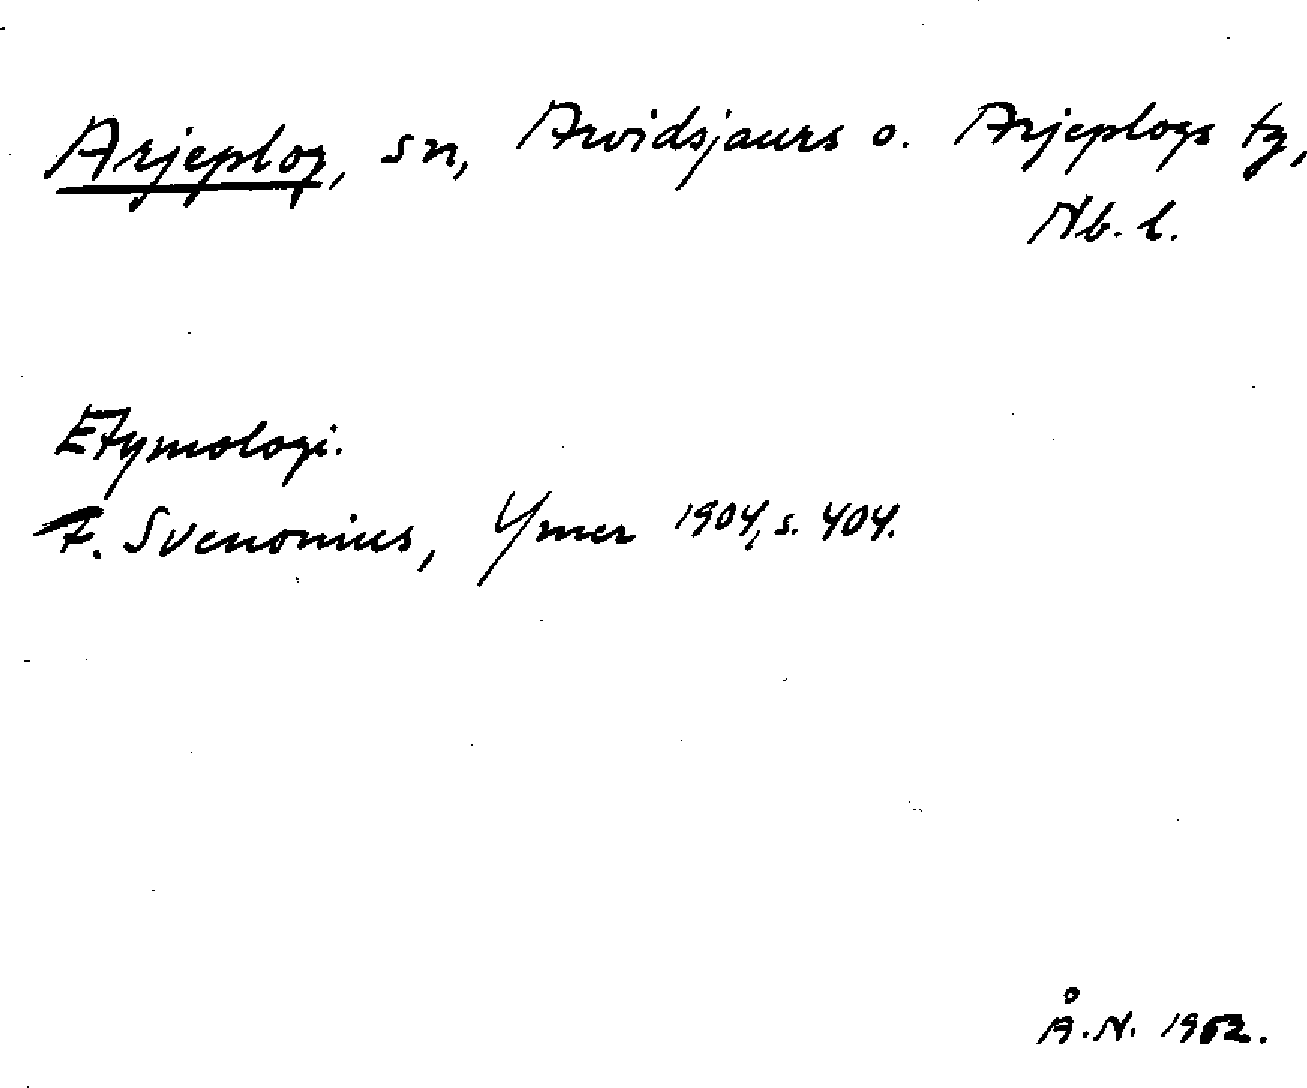 Arjeplog, sn, Arvidsjaurs o. Arjeplogs tg,
Nb. l.
Etymologi.
F. Svenonius, Ymer 1904, s. 404.
Å.N. 1952.